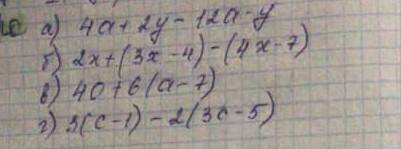 а) 4a + 2y - 12a - y
б) 2x + (3x - 4) - (4x - 7)
в) 40 + 6(a - 7)
г) 3(c - 1) - 2(3c - 5)